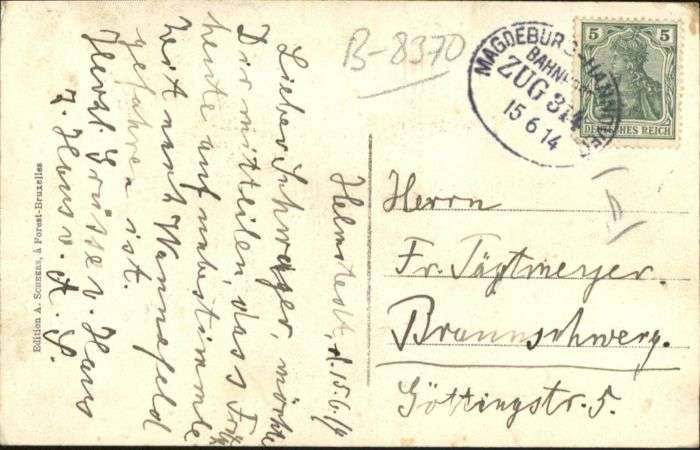 B-8370
MAGDEBURG-HANNOVER
BAHNPOST
ZUG 314
15 6 14
5 5
DEUTSCHES REICH
II
Helmstedt, d. 15.6.14
Lieber Schwager, möchte
Dir mitteilen, dass
heute auf unbestimmte
Zeit nach Wannefeld
gefahren ist.
Herzl. Grüsse v. Haus
z. Haus v.
Herrn
Fr. Tägtmeyer.
Braunschweig.
Göttingstr. 5.
Edition A. SCHEERS, à Forest-Bruxelles